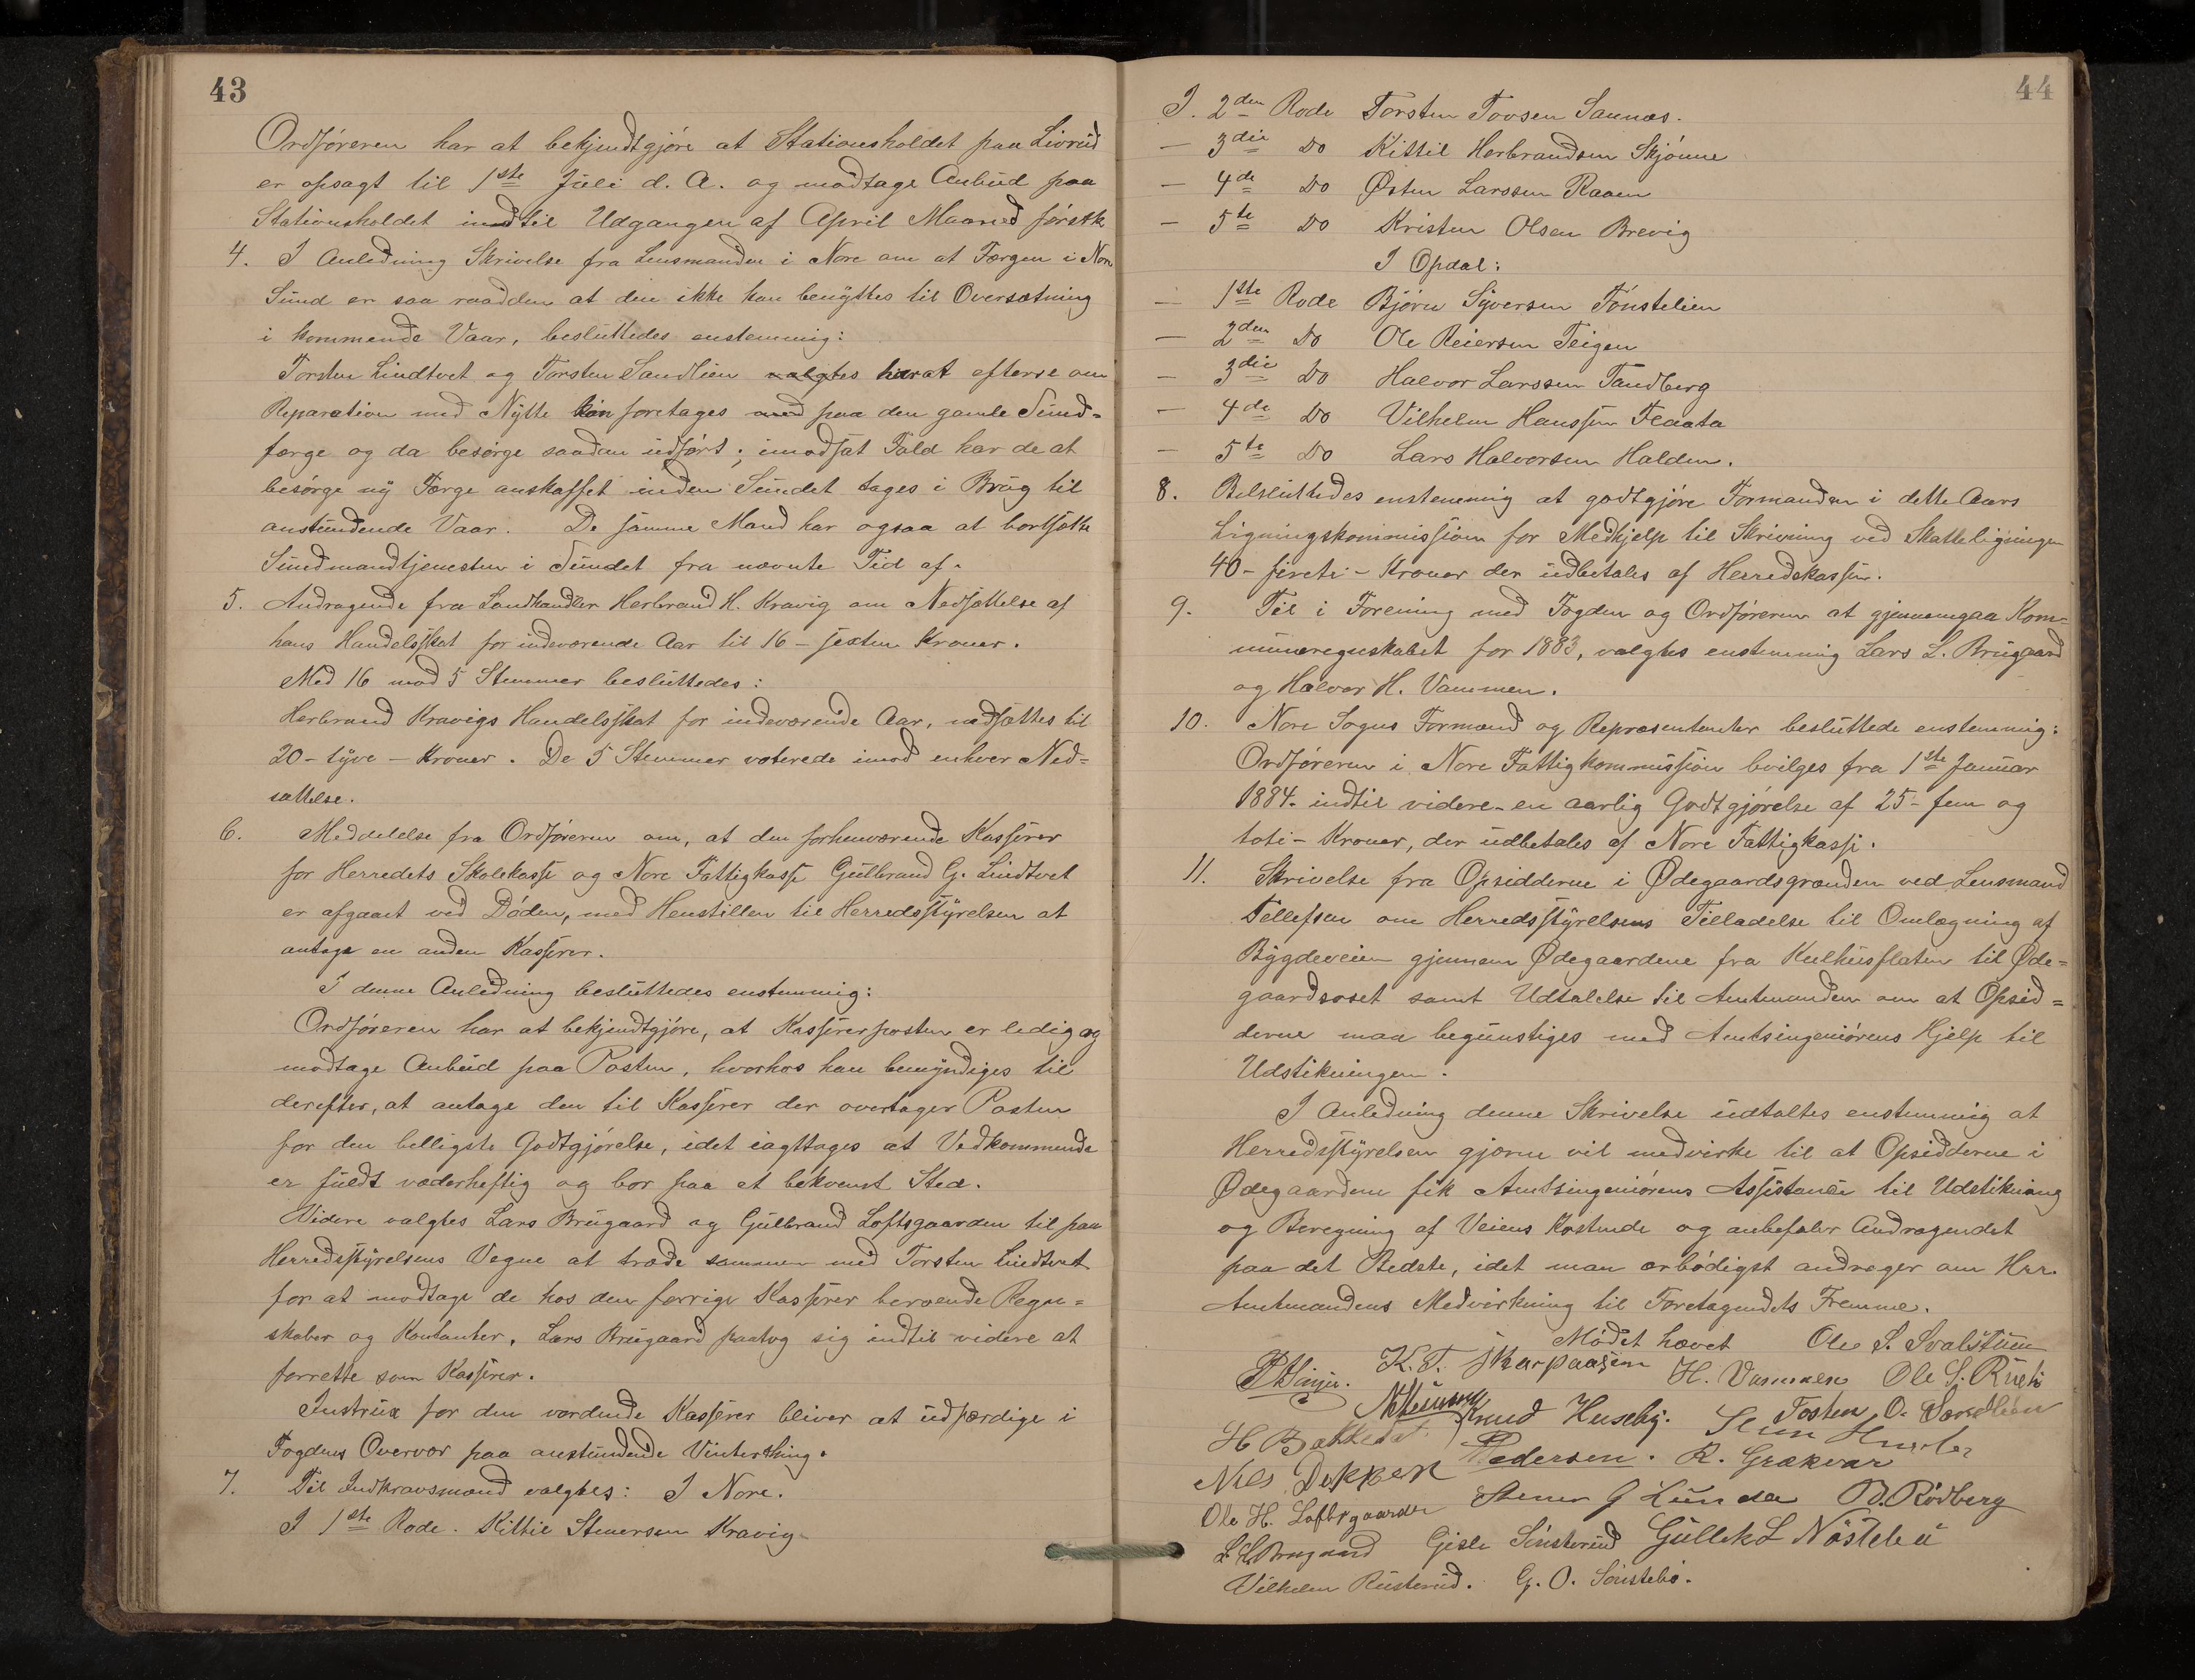 43
Ordføreren har at bekjendtgjøre at Stationsholdet paa Livrud
er opsagt til 1ste Juli d. A. og modtage Anbud paa
Stationsholdet indtil Udgangen af April Maaned førstk
4. I Anledning Skrivelse fra Lensmanden i Nore om at Færgen i Nore
Sund er saa raadden at den ikke kan benyttes til Oversætning
i kommende Vaar, besluttedes enstemmig:
Torsten Lindtvet og Torsten Sandlien valgtes har at efterse om
Reparation med Nytte kan foretages med paa den gamle Sund-
færge og da besørge saadan udført; imodsat Fald har de at
besørge ny Færge anskaffet inden Sundet tages i Brug til
anstundende Vaar. De samme Mænd har ogsaa at bortsætte
Sundmandtjenesten i Sundet fra nævnte Tid af.
5. Andragende fra Landhandler Herbrand H. Kravig om Nedsættelse af
hans Handelsskat for indeværende Aar til 16 - sexten Kroner.
Med 16 mod 5 Stemmer besluttedes:
Herbrand Kravigs Handelsskat for indeværende Aar, nedsættes til
20 - tyve - Kroner. De 5 Stemmer voterede imod enhver Ned-
sættelse.
6. Meddelelse fra Ordføreren om, at den forhenværende Kasserer
for Herredets Skolekasse og Nore Fattigkasse Gulbrand G. Lindtvet
er afgaaet ved Døden, med Henstillen til Herredsstyrelsen at
antage en anden Kasserer.
I denne Anledning besluttedes enstemmig:
Ordføreren har at bekjendtgjøre, at Kassererposten er ledig og
modtage Anbud paa Posten, hvorhos han bemyndiges til
derefter, at antage den til Kasserer der overtager Posten
for den billigste Godtgjørelse, idet iagttages at Vedkommende
er fuldt vederheftig og bor paa et bekvemt Sted.
Videre valgtes Lars Brugaard og Gulbrand Loftsgaarden til paa
Herredsstyrelsens Vegne at træde sammen med Torsten Lindtvet
for at modtage de hos den forrige Kasserer beroende Regn-
skaber og Kontanter. Lars Brugaard paatog sig indtil videre at
forrette som Kasserer.
Instrux for den vordende Kasserer bliver at udfærdige i
Fogdens Overvær paa anstundende Vinterthing.
7. Til Indkravsmænd valgtes: I Nore.
I 1ste Rode. Kittil Stenersen Kravig
44
I. 2den Rode Torsten Tovsen Sannæs.
— 3die Do Kittil Herbrandsen Skjønne
— 4de Do Østen Larssen Raaen
— 5te Do Kristen Olsen Brevig
I Opdal:
— 1ste Rode Bjørn Syversen Tønstelien
— 2den Do Ole Reiersen Teigen
— 3die Do Halvor Larssen Tandberg
— 4de Do Vilhelm Hanssen Flaata
— 5te Do Lars Halvorsen Halden.
8. Belsluttedes enstemmig at godtgjøre Formanden i dette Aars
Ligningskommission for Medhjelp til Skrivning ved Skatteligningen
40 - fireti - Kroner der udbetales af Herredskassen.
9. Til i Forening med Fogden og Ordføreren at gjennemgaa Kom-
muneregnskabet for 1883, valgtes enstemmig Lars L. Brugaard
og Halvor H. Vammen.
10. Nore Sogns Formænd og Repræsentanter besluttede enstemmig:
Ordføreren i Nore Fattigkommission bvilges fra 1ste Januar
1884 indtil videre en aarlig Godtgjørelse af 25 - fem og
toti - Kroner, der udbetales af Nore Fattigkasse.
11. Skrivelse fra Opsidderne i Ødegaardsgrænden ved Lensmand
Tellefsen om Herredsstyrelsens Tilladelse til Omlægning af
Bygdeveien gjennem Ødegaardene fra Kulhusflaten til Øde-
gaardsoset samt Udtalelse til Amtmanden om at Opsid-
derne maa begunstiges med Amtsingeniørens Hjelp til
Udstikningen.
I Anledning denne Skrivelse udtaltes enstemmig at
Herredsstyrelsen gjerne vil medvirke til at Opsidderne i
Ødegaardene fik Amtsingeniørens Assistance til Udstikning
og Beregning af Veiens Kostende og anbefaler Andragendet
paa det Bedste, idet man ærbødigst andrager om Herr.
Amtmandens Medvirkning til Foretagendets Fremme.
Mødet hævet Ole S. Svalstuen
K. T. Skarpaasen H. Vammen Ole S. Rueh
Knud Huseby. Tosten O. Sandlien
H Bakketat
Nils Dokken Pedersen. R. Grækvar
Ole H. Loftsgaarden Stener G Lunde B. Rødberg
L L Brugaard Gisle Sønsterud Gullek L Nøstebu
Vilhelm Rusterud. G. O. Sønstebø.